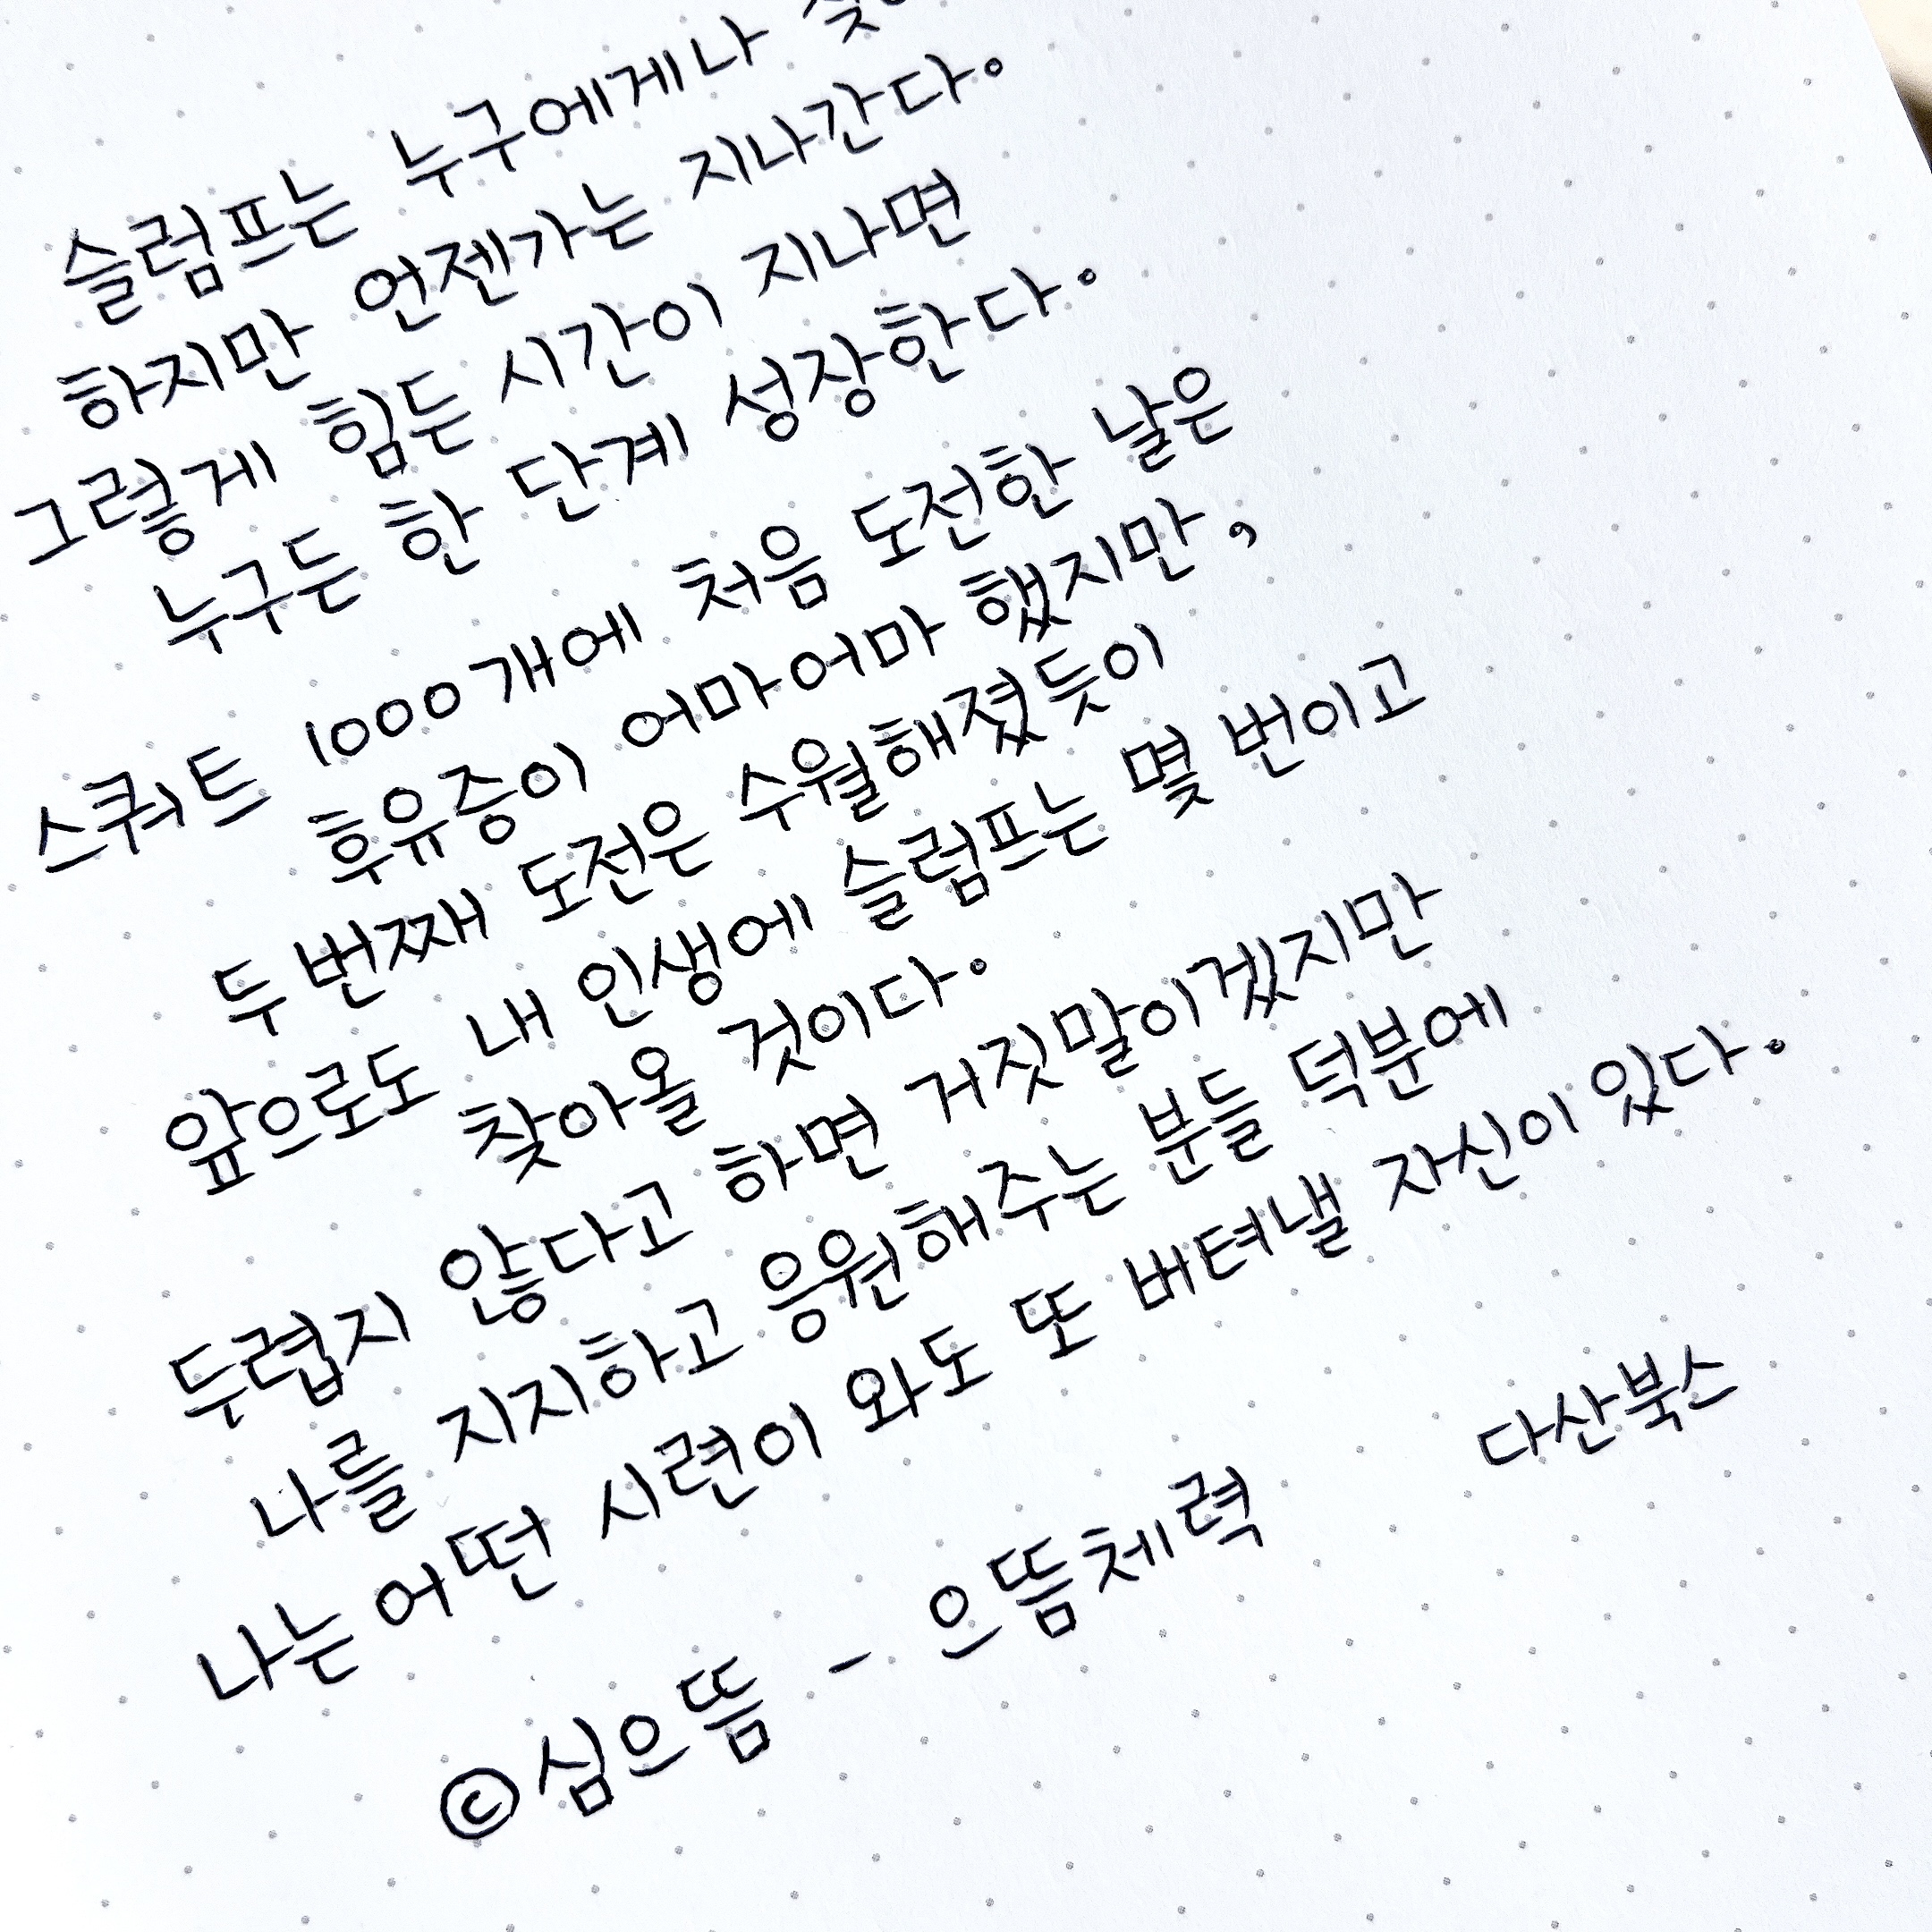 슬럼프는 누구에게나
하지만 언젠가는 지나간다.
그렇게 힘든 시간이 지나면
누구든 한 단계 성장한다.
스쿼트 1000개에 처음 도전한 날은
후유증이 어마어마 했지만,
두 번째 도전은 수월해졌듯이
앞으로도 내 인생에 슬럼프는 몇 번이고
찾아올 것이다.
두렵지 않다고 하면 거짓말이겠지만
나를 지지하고 응원해주는 분들 덕분에
나는 어떤 시련이 와도 또 버텨낼 자신이 있다.
다산북스
©심으뜸 - 으뜸체력